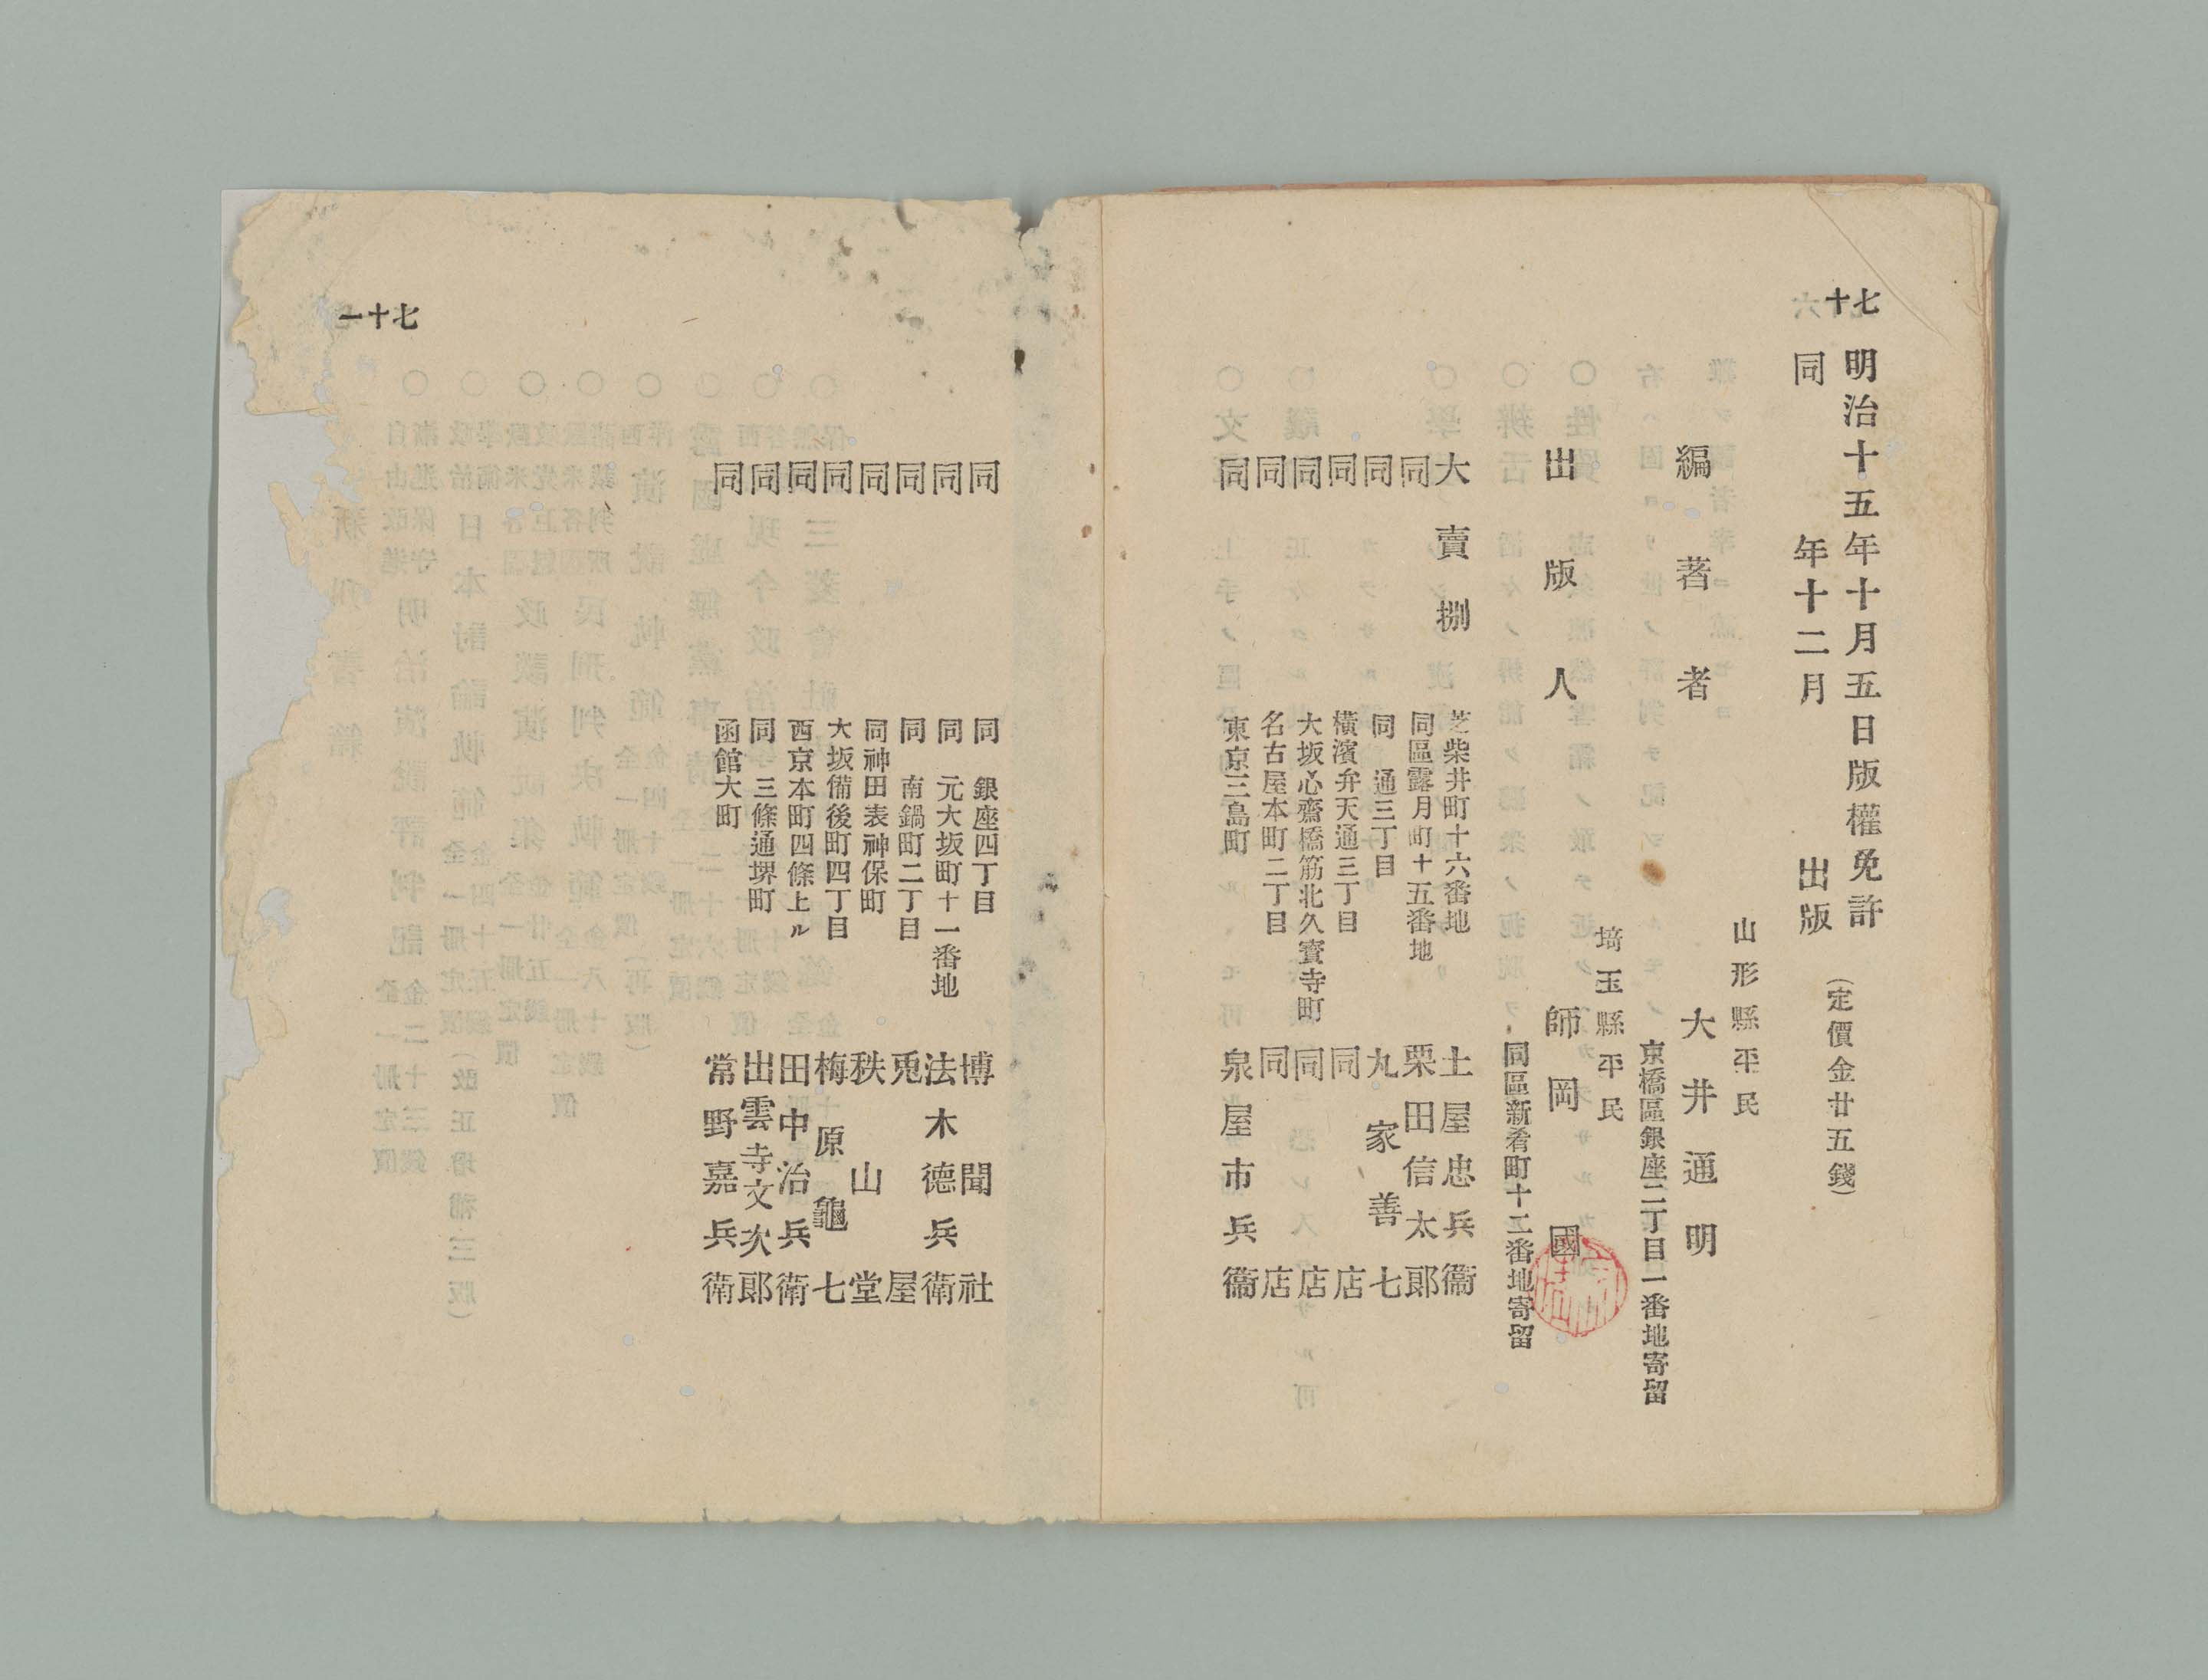 七十
明治十五年十月五日版權免許
同 年十二月 出版
（定價金廿五錢）
山形縣平民
編著者 大井通明
京橋區銀座二丁目一番地寄留
埼玉縣平民
出版人 師岡國
同區新肴町十二番地寄留
大賣捌 芝柴井町十六番地 土屋忠兵衞
同 同區露月町十五番地 栗田信太郎
同 同 通三丁目 丸家善七
同 橫濱弁天通三丁目 同店
同 大坂心齋橋筋北久寳寺町 同店
同 名古屋本町二丁目 同店
同 東京三島町 泉屋市兵衞
同 同 銀座四丁目 博聞社
同 同 元大坂町十一番地 法木德兵衛
同 同 南鍋町二丁目 兎屋
同 同神田表神保町 秩山堂
同 大坂備後町四丁目 梅原龜七
同 西京本町四條上ル 田中治兵衛
同 同 三條通堺町 出雲寺文次郎
同 函館大町 常野嘉兵衛
七十一